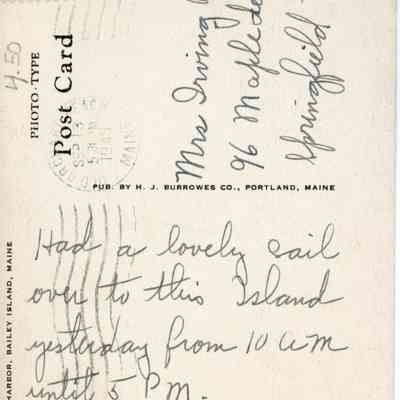 4.50
PHOTO-TYPE
Post Card
SEP 13
5 PM
1945
MAINE
Mrs Irving
96 Maple
Springfield
PUB. BY H. J. BURROWES CO., PORTLAND, MAINE
HARBOR, BAILEY ISLAND, MAINE
Had a lovely sail
over to this Island
yesterday from 10 am
until 5 PM.